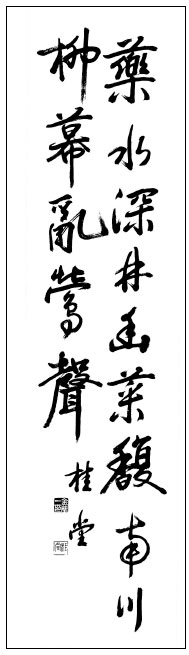 藥水深井幽菜馥南川
柳幕亂鶯聲
桂堂